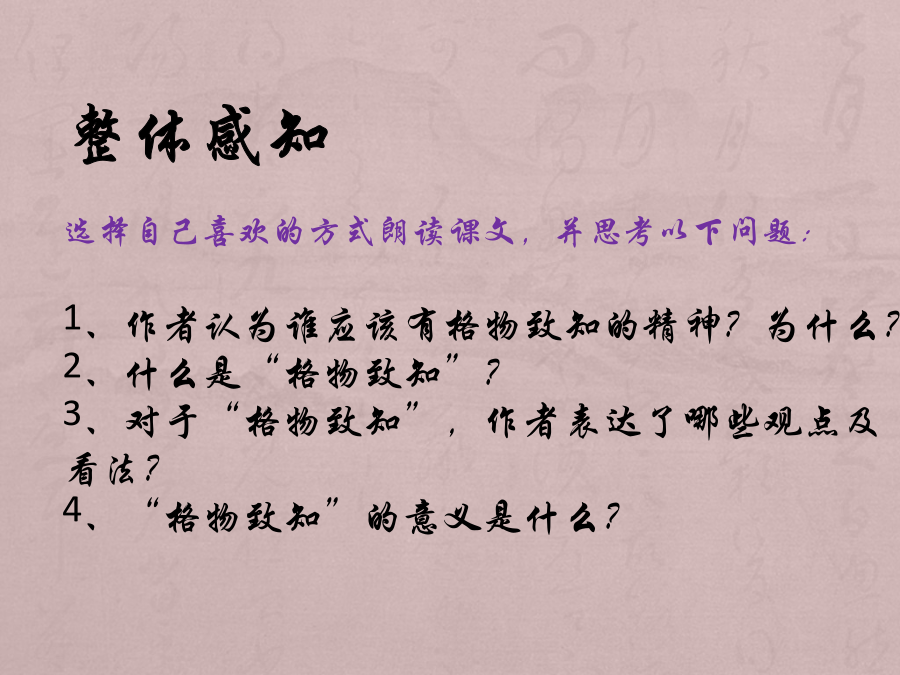 整体感知
选择自己喜欢的方式朗读课文，并思考以下问题：
1、作者认为谁应该有格物致知的精神？为什么？
2、什么是“格物致知”？
3、对于“格物致知”，作者表达了哪些观点及
看法？
4、“格物致知”的意义是什么？